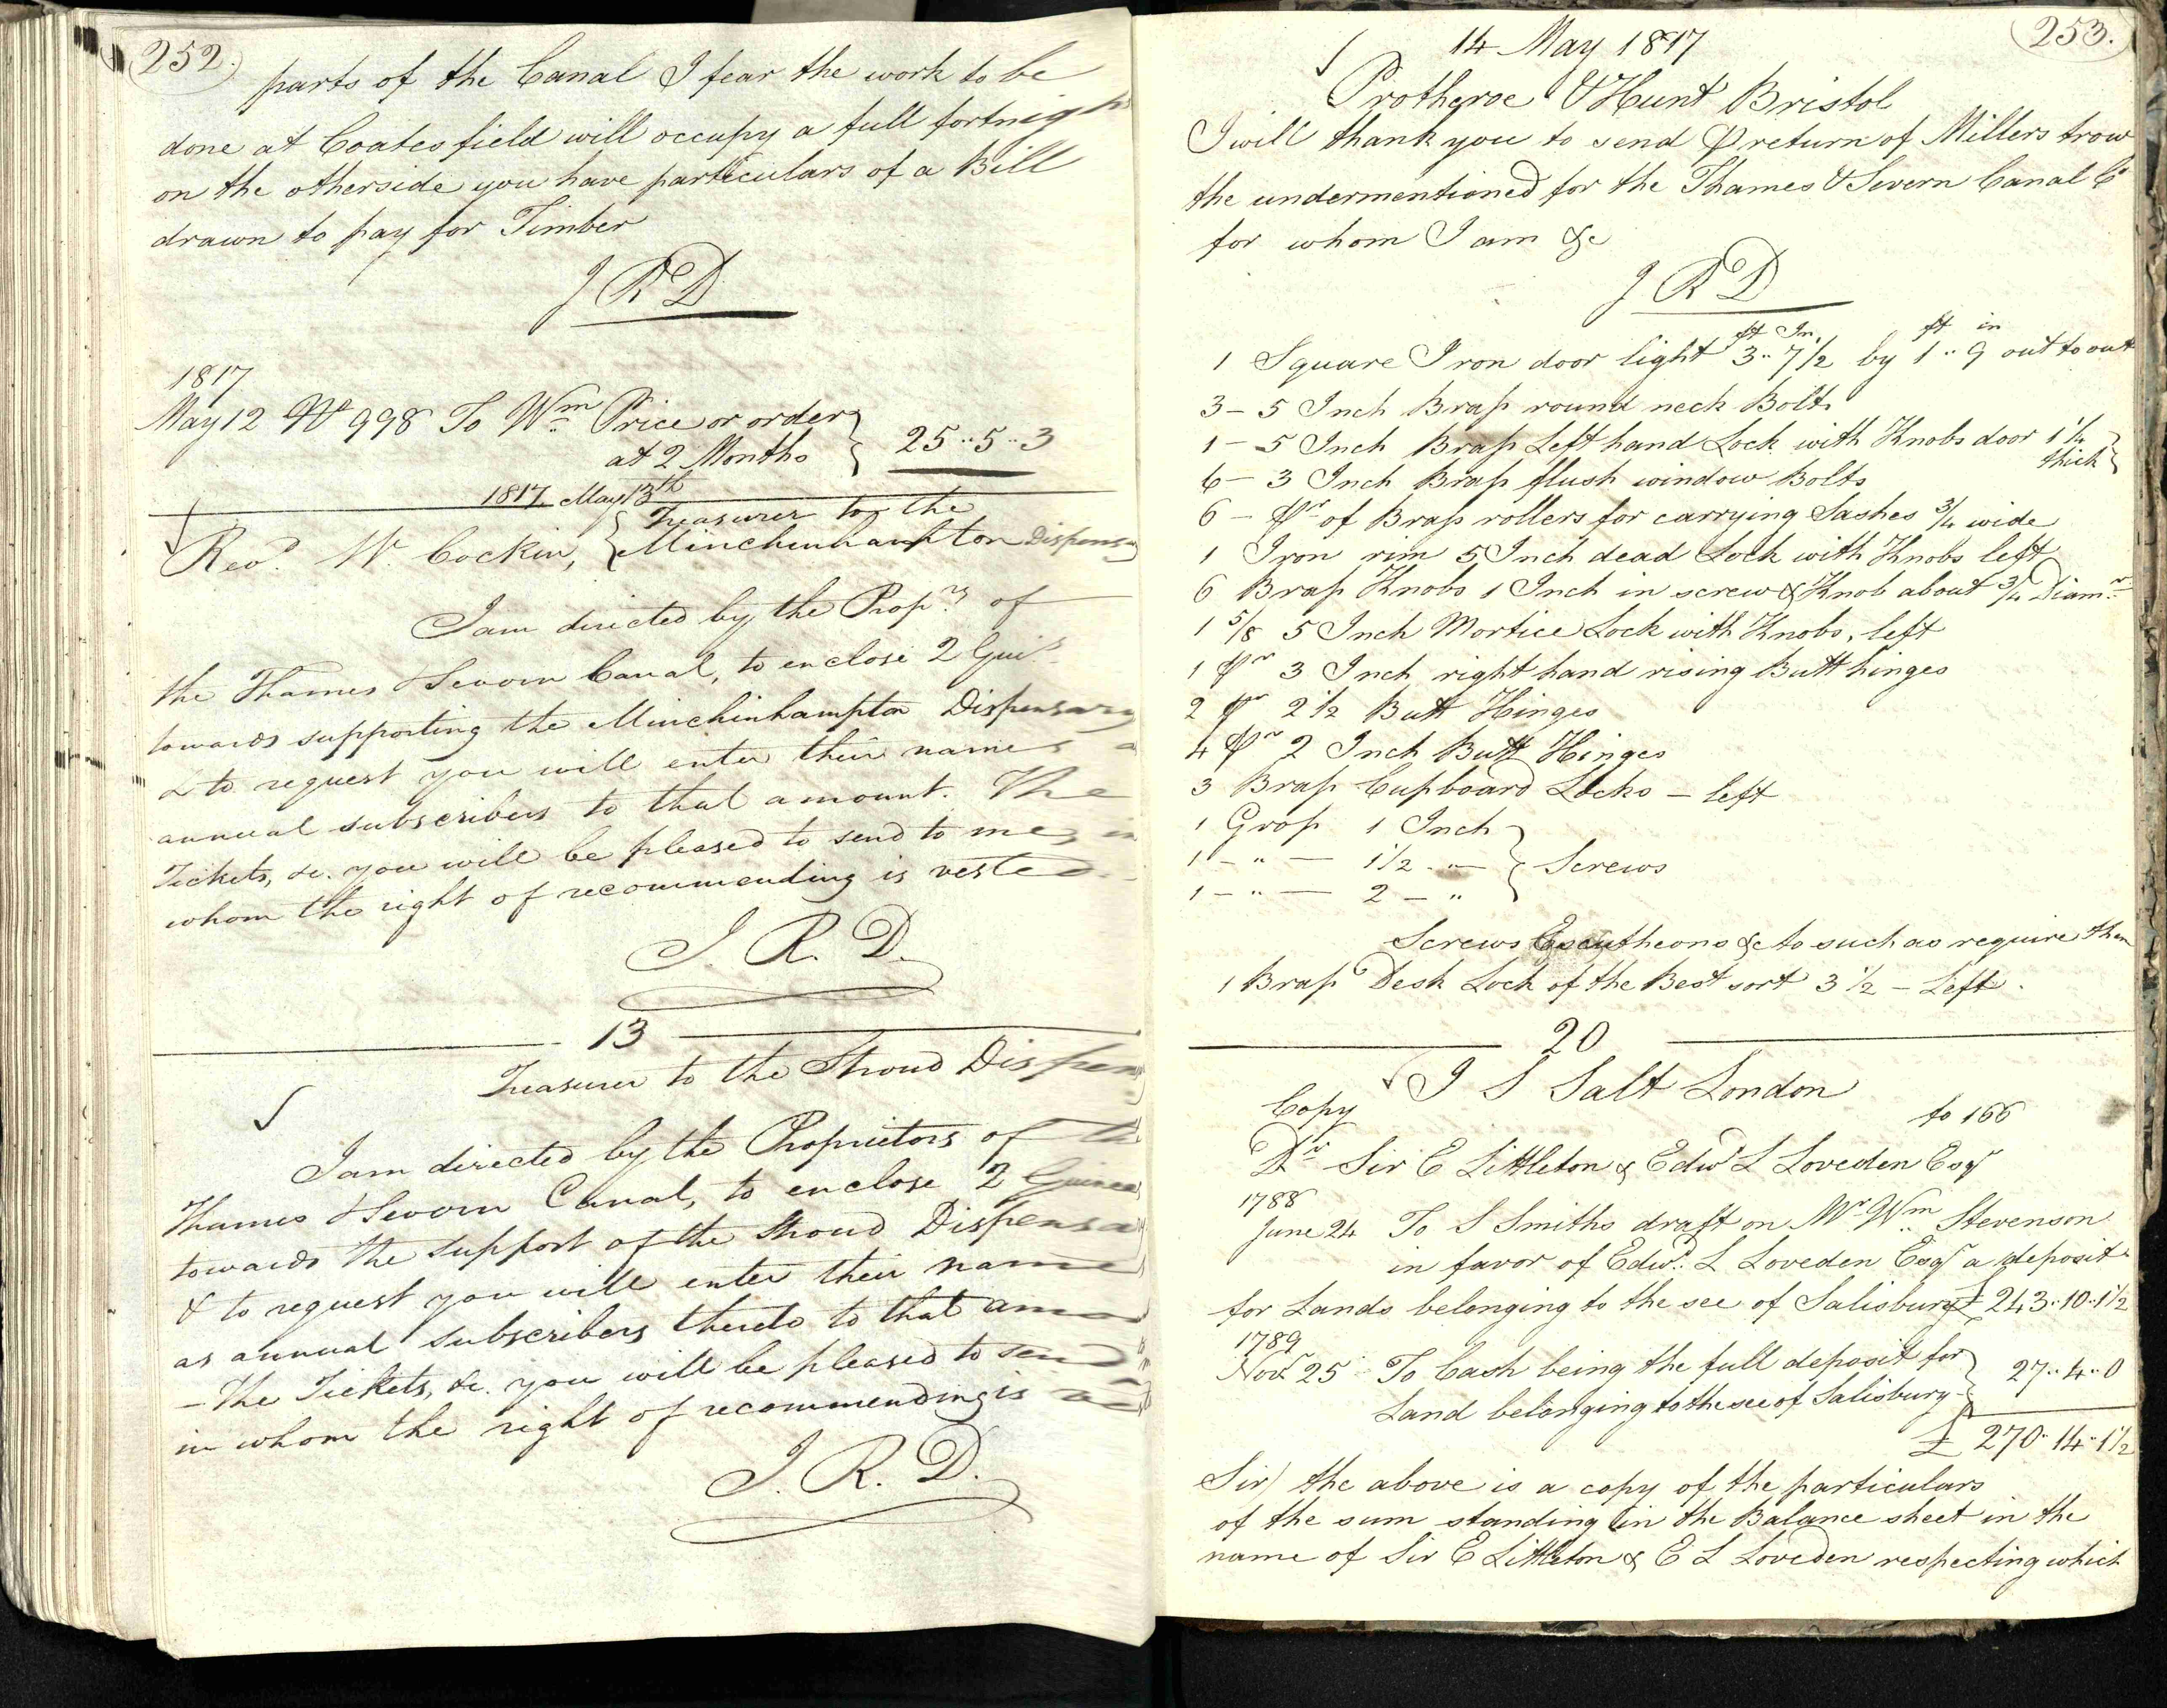 252.
parts of the Canal I fear the work to be
done at Coatesfield will occupy a full fortnigh
on the otherside you have particulars of a Bill
drawn to pay for Timber
J R D
1817
May 12 No 998 To Wm Price or order
at 2 Months } 25..5..3
1817. May 13th
Revd. W. Cockin, { Treasurer to the
Minchinhampton Dispens
I am directed by the Proprs of
the Thames & Severn Canal, to enclose 2 Guis
towards supporting the Minchinhampton Dispensary
& to request you will enter their names a
annual subscribers to that amount. The
Tickets, &c. you will be pleased to send to me, in
whom the right of recommending is vested.
J. R. D.
13
Treasurer to the Stroud Dispen
I am directed by the Proprietors of the
Thames & Severn Canal, to enclose 2 Guineas
towards the support of the Stroud Dispensa
& to request you will enter their name
as annual subscribers thereto to that am
- The Tickets, &c. you will be pleased to send
in whom the right of recommending is
J. R. D.
253.
14 May 1817
Protheroe & Hunt Bristol
I will thank you to send P return of Millers trow
the undermentioned for the Thames & Severn Canal Co
for whom I am &c
J R D
ft In. ft in
1 Square Iron door light 3.. 7 1/2 by 1.. 9 out to out
3 - 5 Inch Brass round neck Bolts
1 - 5 Inch Brass Left hand Lock with Knobs door 1 1/4 }
thick
6 - 3 Inch Brass flush window Bolts
6 - Pr of Brass rollers for carrying Sashes 3/4 wide
1 Iron rim 5 Inch dead Lock with Knobs left
6 Brass Knobs 1 Inch in screw & Knob about 3/4 Diamr
1 5/8 5 Inch Mortice Lock with Knobs, left
1 Pr 3 Inch right hand rising Butt hinges
2 Pr 2 1/2 Butt Hinges
4 Pr 2 Inch Butt Hinges
3 Brass Cupboard Locks - left
1 Gross 1 Inch
1 - " - 1 1/2 - " } Screws
1 - " - 2 - "
Screws Escutheons &c to such as require them
1 Brass Desk Lock of the Best sort 3 1/2 - Left.
20
J S Salt London
Copy to 166
Dr Sir E Littleton & Edwd L Loveden Esqr
1788
June 24 To S Smiths draft on Mr Wm Stevenson
in favor of Edwd. L Loveden Esqr a deposit
for Lands belonging to the see of Salisbury £ 243..10..1 1/2
1789
Novr 25 To Cash being the full deposit for } 27..4..0
Land belonging to the see of Salisbury
£ 270..14..1 1/2
Sir) the above is a copy of the particulars
of the sum standing in the Balance sheet in the
name of Sir E Littleton & E L Loveden respecting which